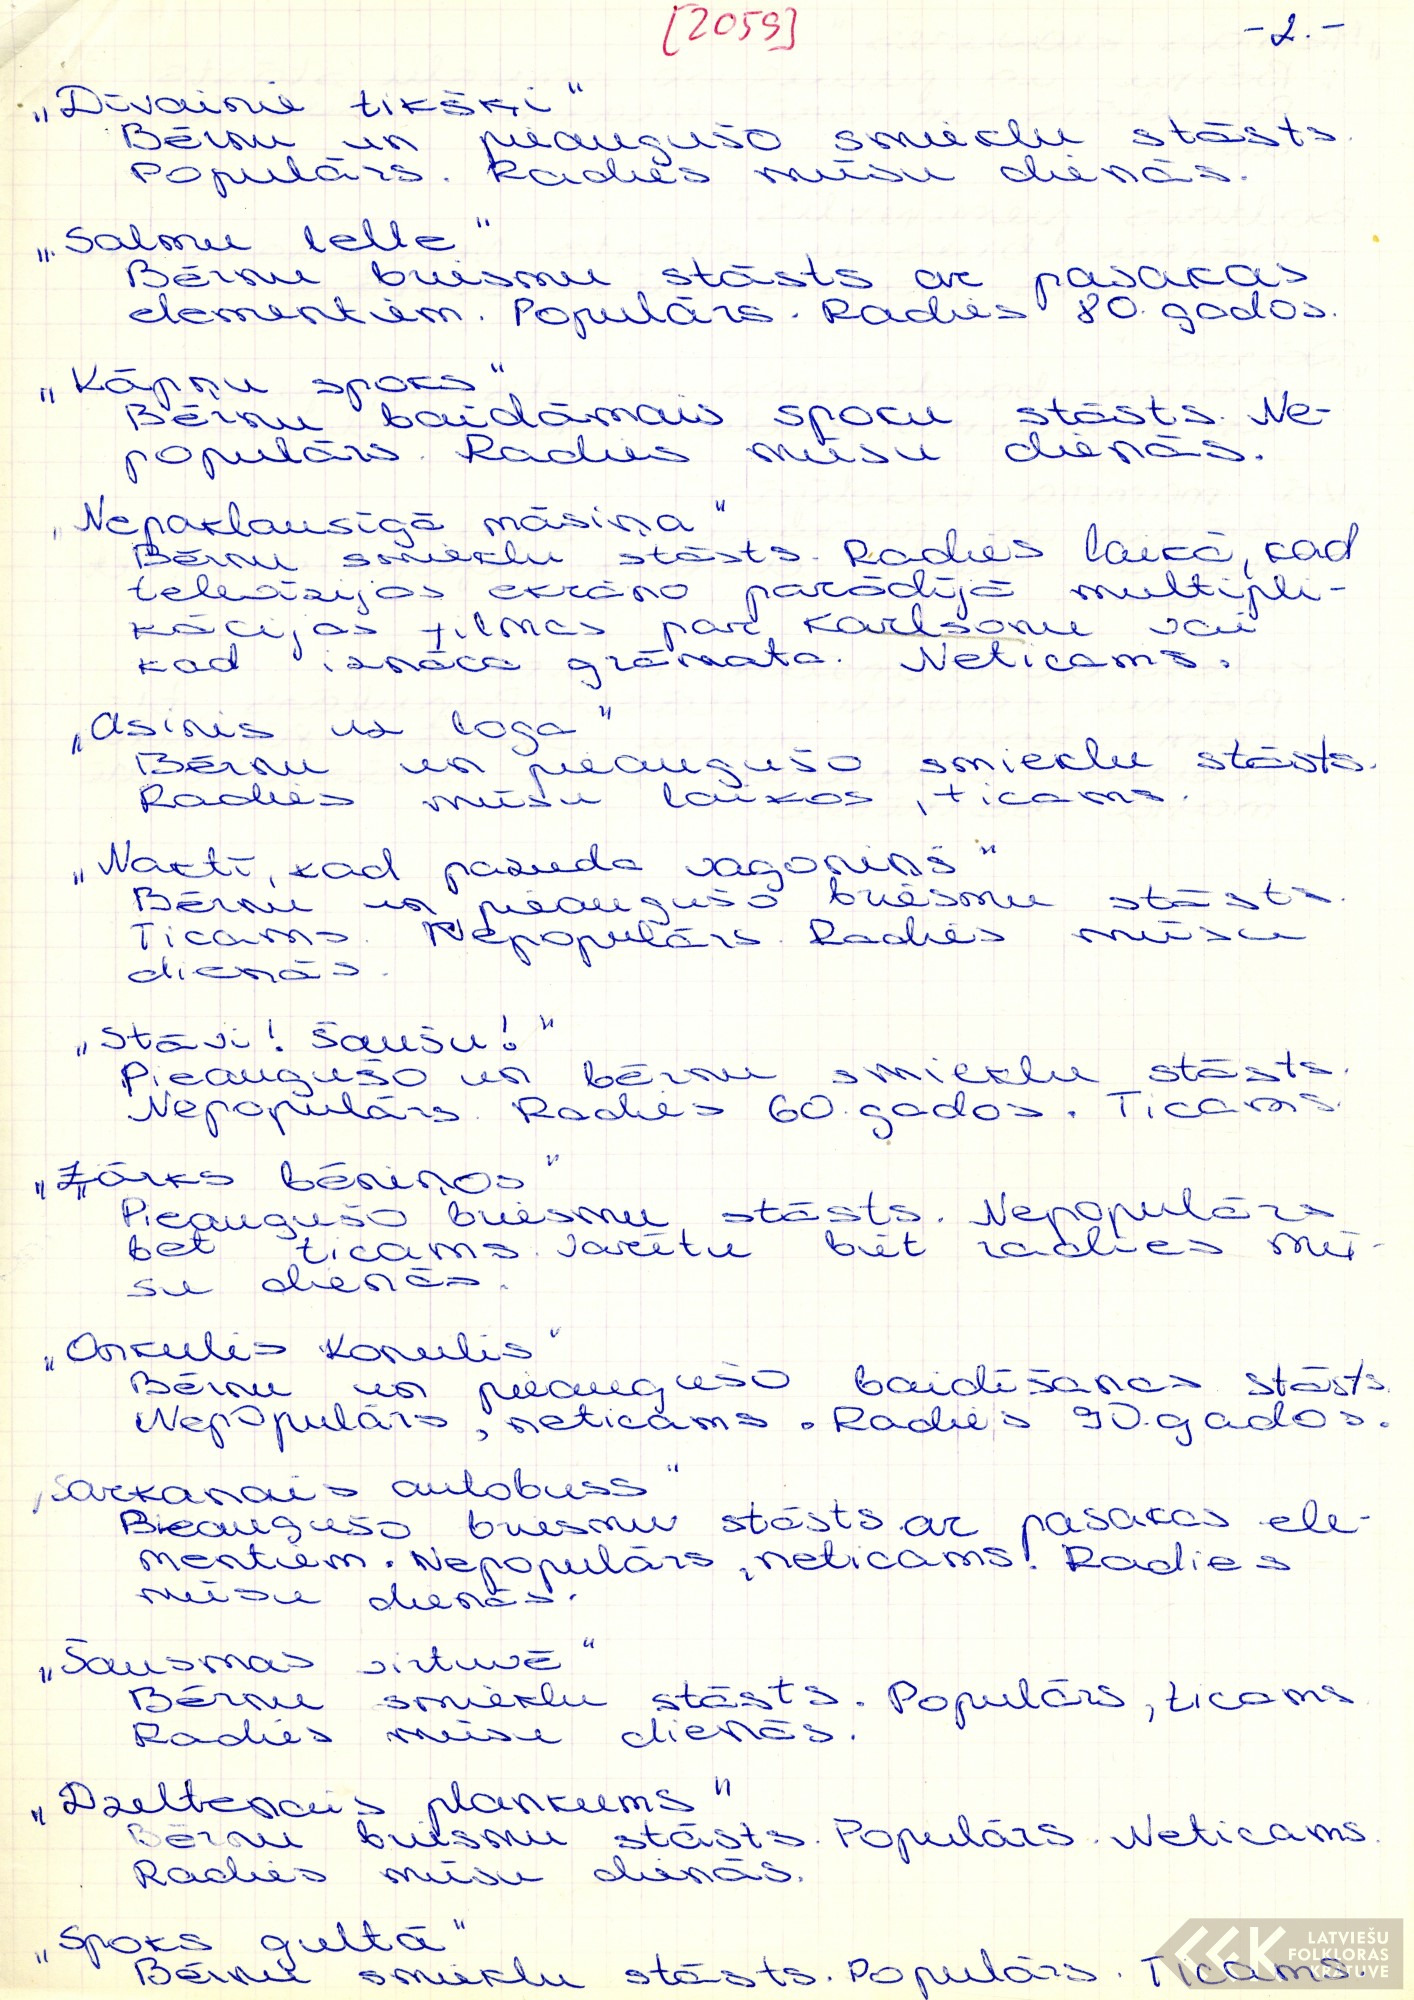 [2059]
-2.-
„Dīvainie tikšķi"
Bērnu un pieaugušo smieklu stāsts.
Populārs. Radies mūsu dienās.
„Salmu lelle"
Bērnu briesmu stāsts ar pasakas
elementiem. Populārs. Radies 80. gados.
„Kāpņu spoks"
Bērnu baidāmais spoku stāsts. Ne-
populārs. Radies mūsu dienās.
„Nepaklausīgā māsiņa"
Bērnu smieklu stāsts. Radies laikā, kad
televīzijas ekrāno parādījā multipli-
kācijas filmas par Karlsonu vai
kad iznāca grāmata. Neticams.
„Asinis uz loga"
Bērnu un pieaugušo smieklu stāsts.
Radies mūsu laikos, ticams.
„Naktī, kad pazuda vagoniņš"
Bērnu un pieaugušo briesmu stāsts.
Ticams. Nepopulārs. Radies mūsu
dienās.
„Stāvi! Šaušu!"
Pieaugušo un bērnu smieklu stāsts.
Nepopulārs. Radies 60. gados. Ticams.
„Zārks bēniņos"
Pieaugušo briesmu stāsts. Nepopulārs
bet ticams. Varētu būt radies mū-
su dienās.
„Onkulis Konulis"
Bērnu un pieaugušo baidīšanas stāsts.
Nepopulārs, neticams. Radies 90. gados.
„Sarkanais autobuss"
Pieaugušo briesmu stāsts ar pasakas ele-
mentiem. Nepopulārs, neticams! Radies
mūsu dienās.
„Šausmas virtuvē"
Bērnu smieklu stāsts. Populārs, ticams
Radies mūsu dienās.
„Dzeltenais plankums"
Bērnu briesmu stāsts. Populārs. Neticams.
Radies mūsu dienās.
„Spoks gultā"
Bērnu smieklu stāsts. Populārs. Ticams.
LATVIEŠU
FOLKLORAS
KRĀTUVE